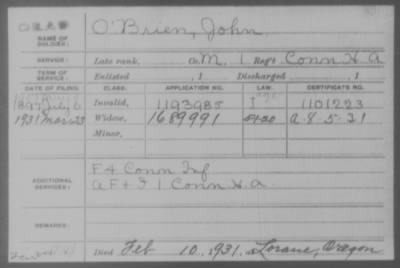 O'Brien, John
NAME OF SOLDIER:
SERVICE: Late rank, Co. M, 1 Reg't Conn H A
TERM OF SERVICE: Enlisted , 1 Discharged , 1
DATE OF FILING. CLASS. APPLICATION NO. LAW. CERTIFICATE NO.
1897 July 6 Invalid, 1193985 1101223
1931 Mar 23 Widow, 1689991 A-8-5-31
Minor,
ADDITIONAL SERVICES: F 4 Conn Inf
F + I 1 Conn H. A.
REMARKS:
Died Feb 10, 1931, Lorane, Oregon